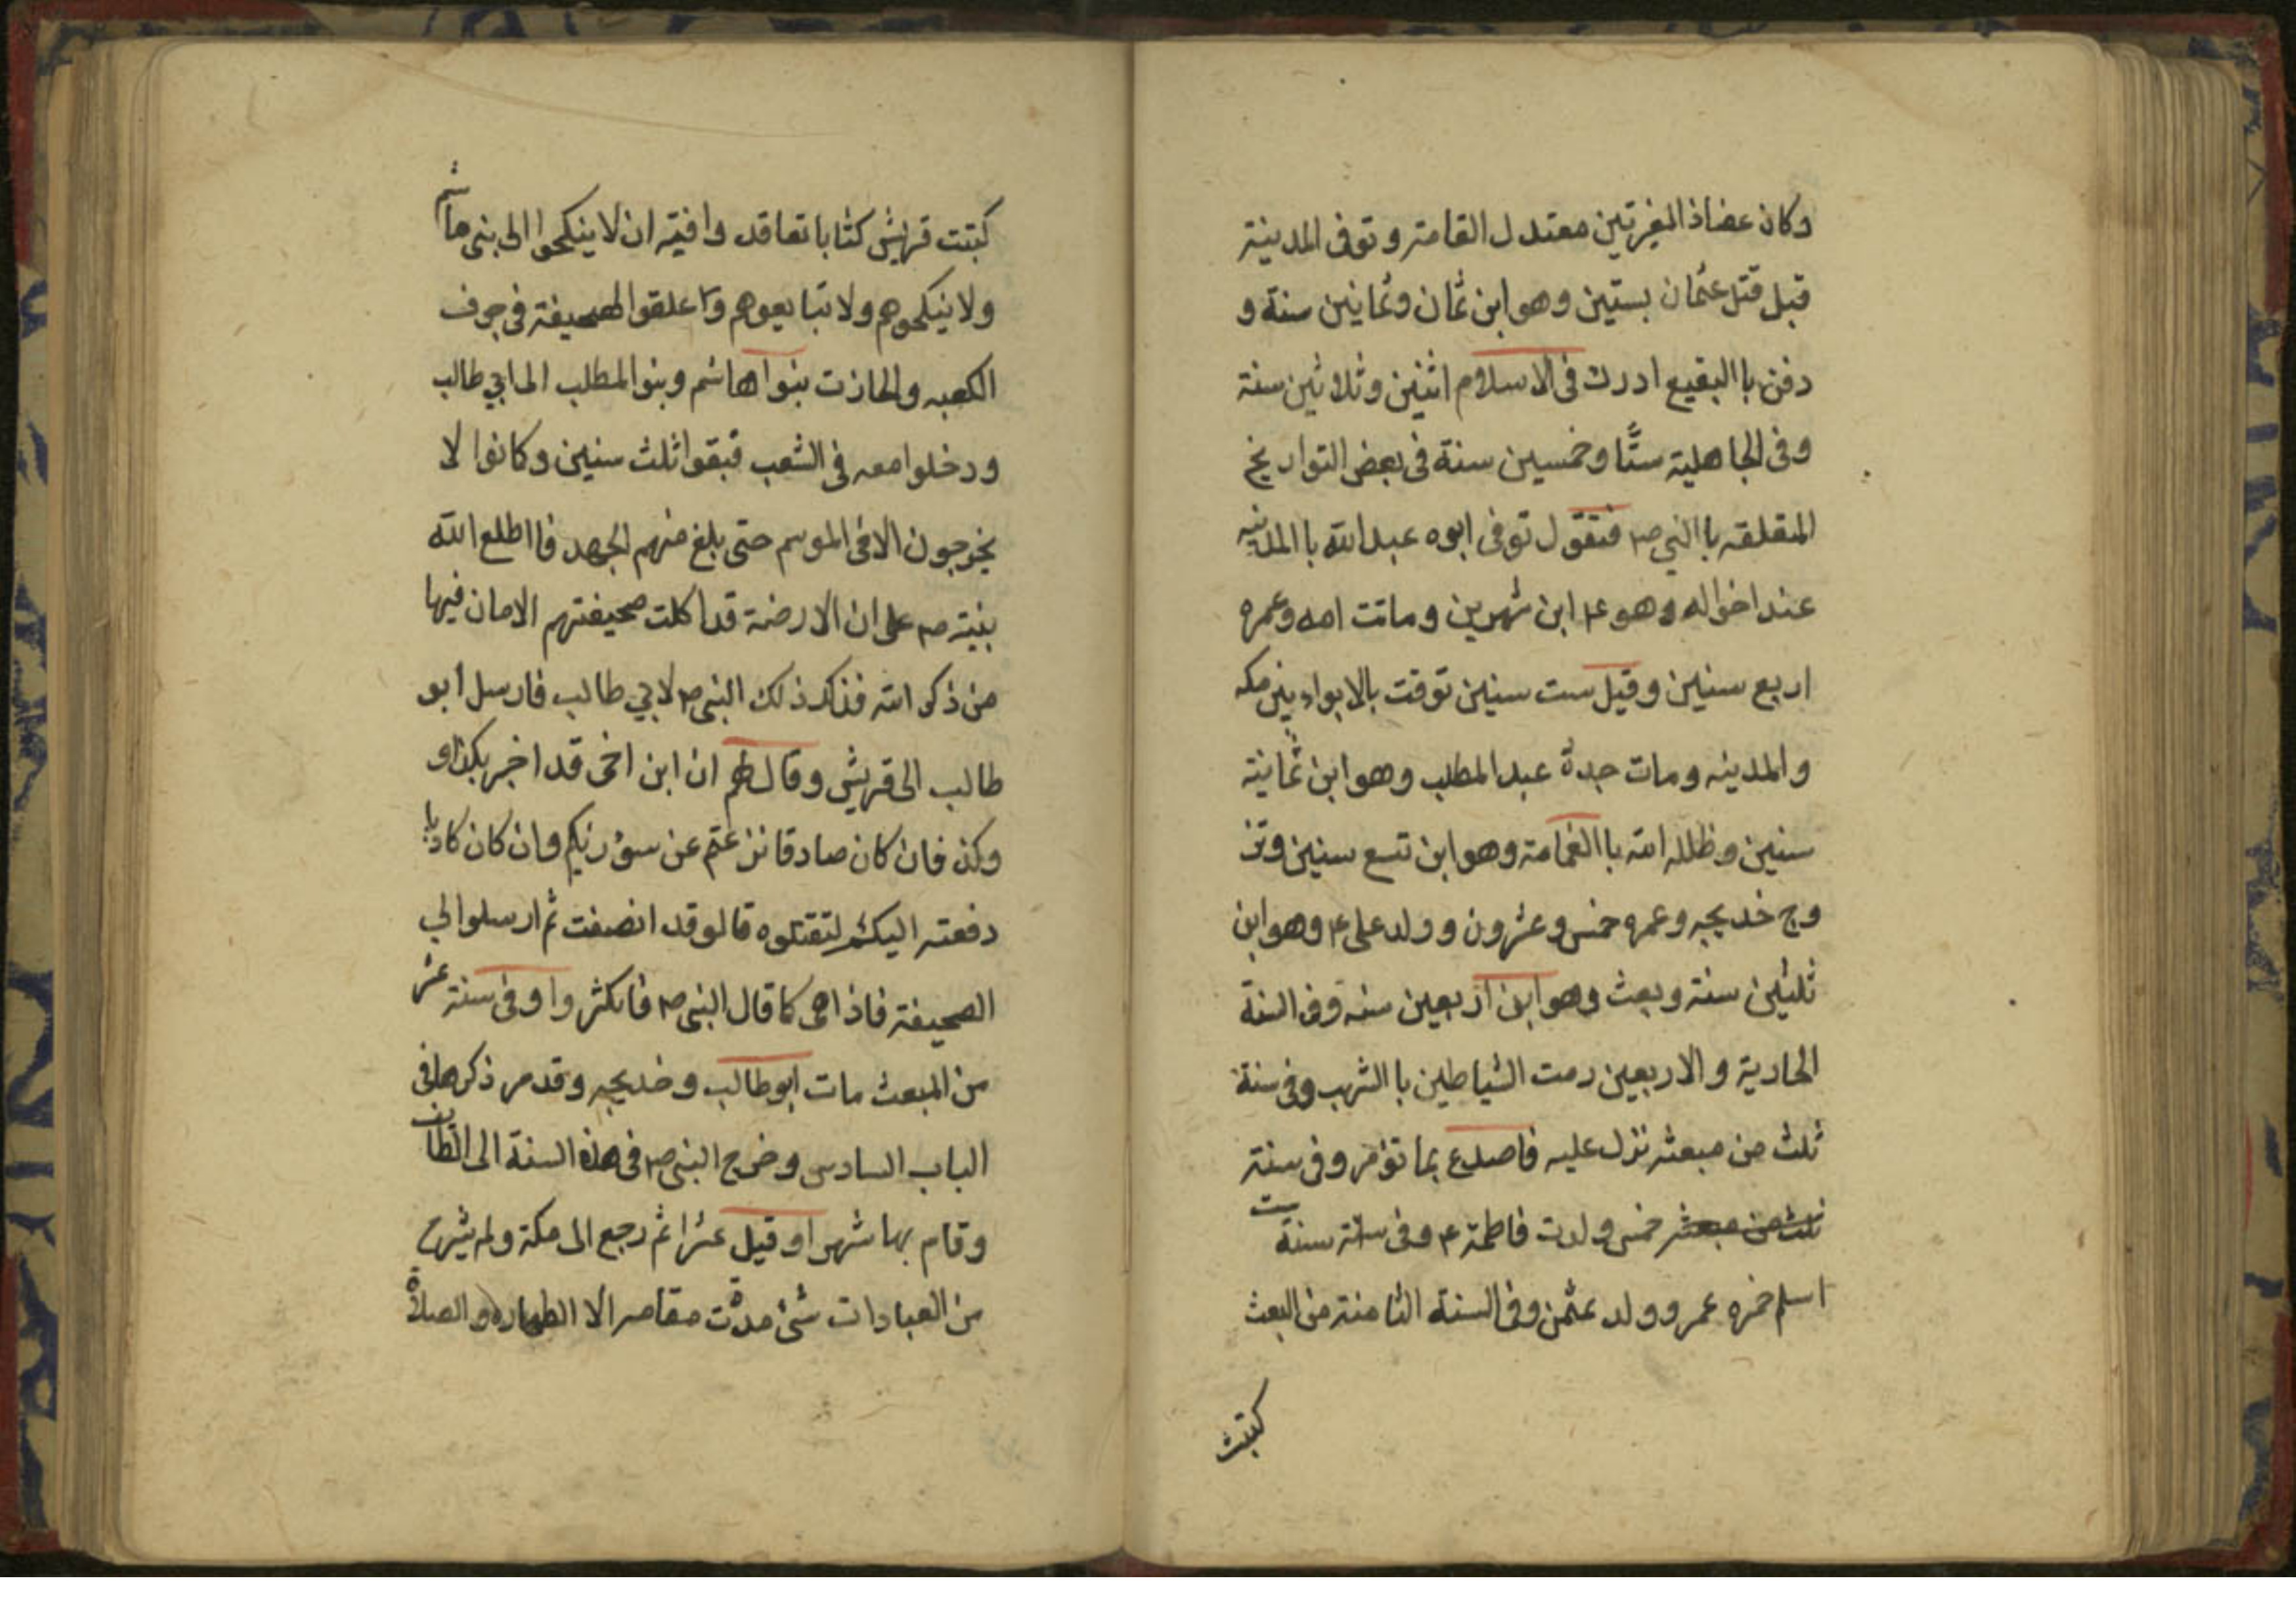 وكان عضاذ المغرتين معتدل القامتر وتوفى المدينة
قبل قتل عثمان بستين وهو ابن ثمان وثمانين سنة و
دفن باالبقيع ادرك فى الاسلام اثنين وثلاثين سنة
وفى الجاهلية ستًّا وخمسين سنة فى بعض التواريخ
المتعلقه باالنبي ص فنقول توفى ابوه عبد الله باالمدنيه
عند اخواله وهو ع ابن شهرين وماتت امه وعمره
اربع سنين وقيل ست سنين توفت بالابواء بين مكه
والمدينه ومات جدة عبد المطلب وهو ابن ثمانية
سنين وظلله الله باالغمامة وهو ابن تسع سنين وتز
وج خديجه وعمره خمس وعشرون وولد على ع وهو ابن
ثلثين سنة وبعث وهو ابن اربعين سنه وفى السنة
الحادية والاربعين رمت الشياطين باالشهب وفى سنة
ثلث من مبعثه نزل عليه فاصدع بما تؤمر وفى سنة
ثلث من مبعثه خمس ولدت فاطمة ع وفى ستة سنة ست
اسلم حمزه عمر وولد عثمن وفى السنة الثامنة من البعث
كتبت
كتبت قريش كتابا تعاقدوا فيه ان لا ينكحوا الى بنى هاشم
ولا ينكحوهم ولا تبايعوهم و علقوا الصحيفة فى جوف
الكعبه والحازت بنوا هاشم وبنو المطلب الى ابي طالب
ودخلوا معه فى الشعب فبقوا ثلث سنين وكانوا لا
يخرجون الا فى الموسم حتى بلغ منهم الجهد فا اطلع الله
بنيه ص على ان الارضة قد اكلت صحيفتهم الا مان فيها
من ذكر الله فذكر ذلك النبى ص لابي طالب فارسل ابو
طالب الى قريش وقال لهم ان ابن اخى قد اخبر بكذا و
وكذا فان كان صادقا نزعتم عن سوء رئيكم وان كان كاذبا
دفعته اليكم لتقتلوه قالو قد انصفت ثم ارسلوا لي
الصحيفة فاذا هى كما قال النبى ص فانكثروا وفى سنة عشر
من المبعث مات ابو طالب وخديجه وقد مر ذكرها فى
الباب السادس وخرج النبى ص فى هذه السنة الى الطايف
وقام بها شهرا وقيل عشرا ثم رجع الى مكة ولم يشرح
من العبادات شئ مدّت مقامه الا الطهاره والصلاة